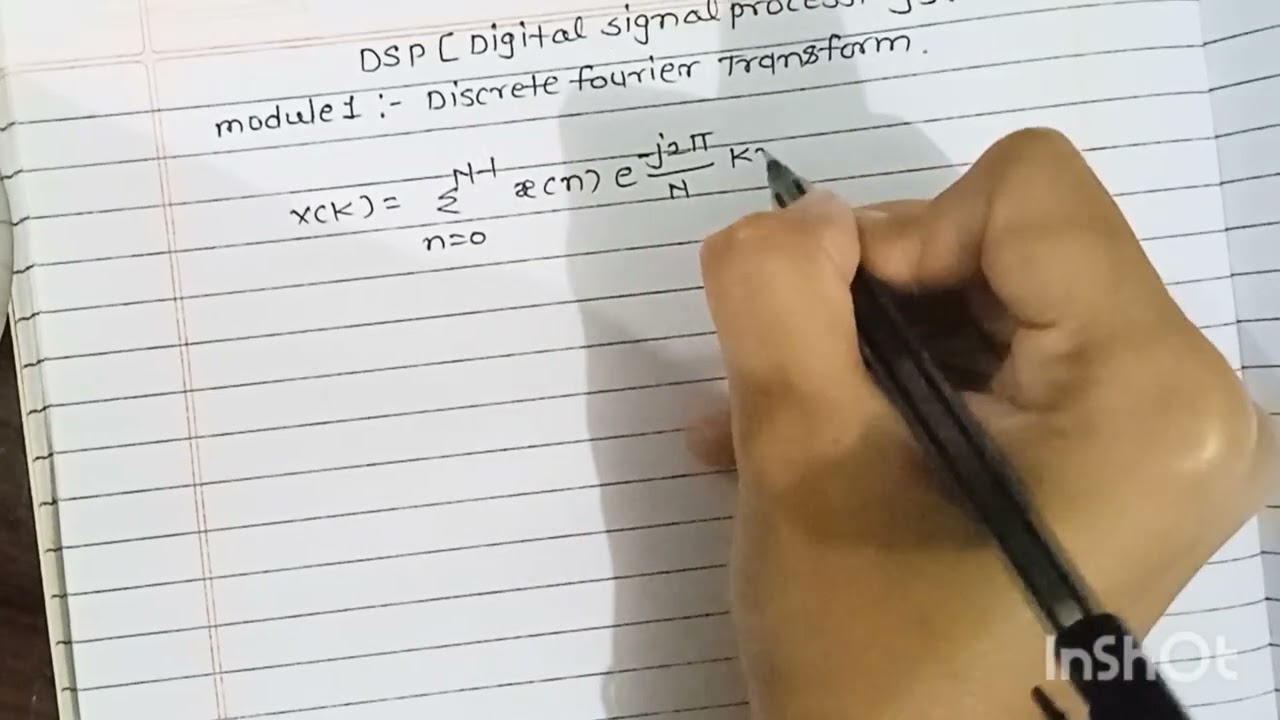 DSP [ Digital signal
module 1 :- Discrete fourier Transform.
X(K) = Σ_{n=0}^{N-1} x(n) e^{\frac{-j2π}{N} K}
InShOt